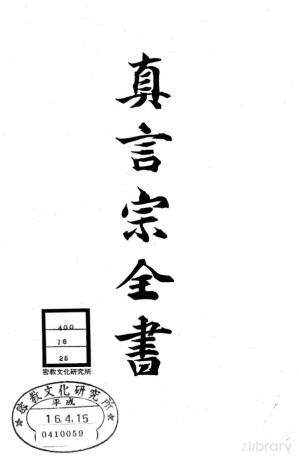 真言宗全書
400
16
25
密教文化研究所
密教文化研究所
平成
16.4.15
0410059
zlibrary